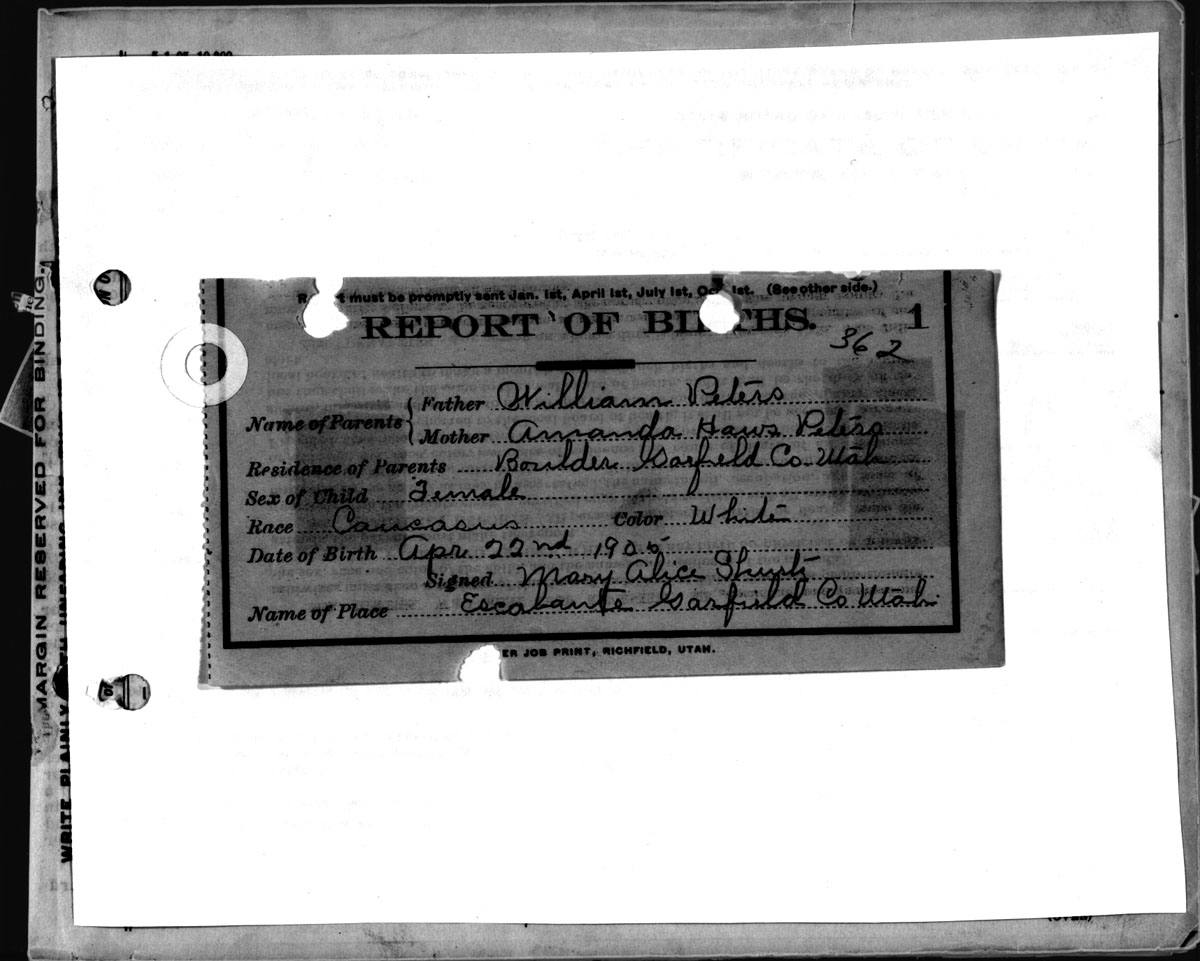 5-1-05-10,000
MARGIN RESERVED FOR BINDING.
WRITE PLAINLY
must be promptly sent Jan. 1st, April 1st, July 1st, Oct 1st. (See other side.)
REPORT OF BIRTHS. 1
362
Name of Parents
Father William Peters
Mother Amanda Haws Peters
Residence of Parents Boulder Garfield Co. Utah
Sex of Child Female
Race Caucasus Color White
Date of Birth Apr 22nd 1905
Signed Mary Alice
Name of Place Escalante Garfield Co Utah.
ER JOB PRINT, RICHFIELD, UTAH.